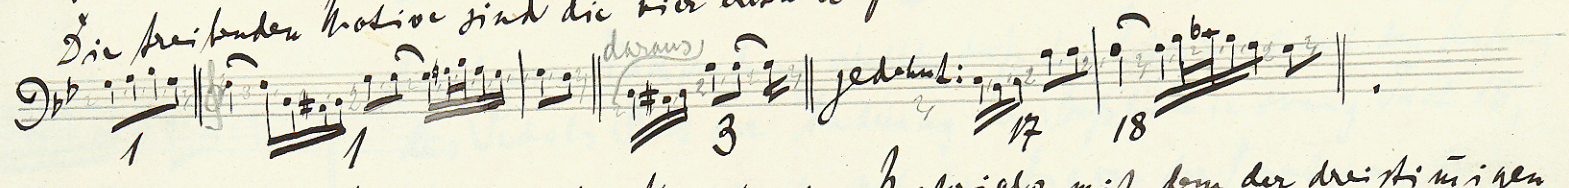 Die treibenden Motive sind die vier
daraus
gedehnt:
1 1 3 17 18
mit dem der dreistimigen